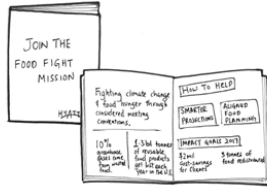 JOIN THE
FOOD FIGHT
MISSION
HYATT
Fighting climate change
& food hunger through
considered meeting
conventions.
10%
greenhouse
gases come
from wasted
food.
1.3bil tonnes
of reusable
food products
get lost each
year in the U.S.
HOW TO HELP
SMARTER
PROJECTIONS
ALIGNED
FOOD
PLANNING
IMPACT GOALS 2017
$2mil
cost-savings
for clients
3 tonnes of
food redistributed